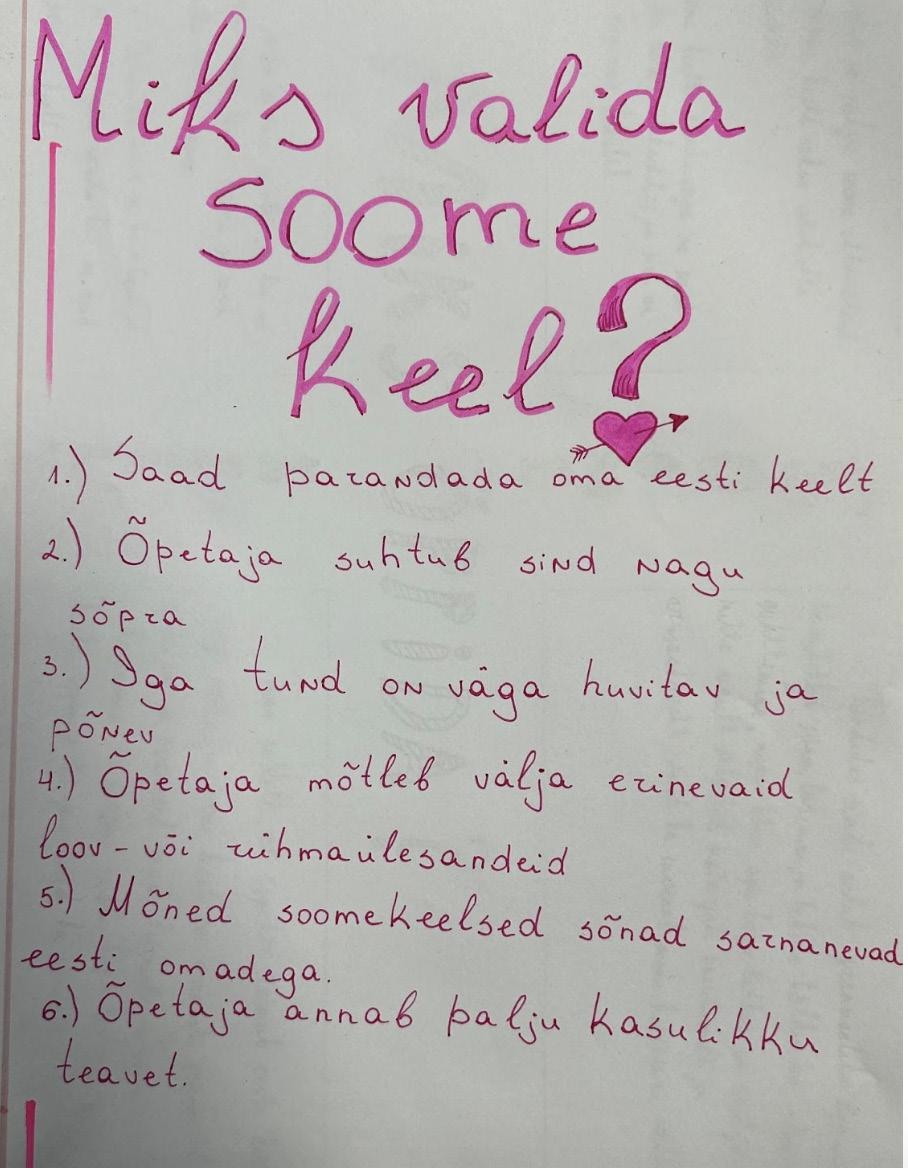 Miks valida
soome
keel?
1.) Saad parandada oma eesti keelt
2.) Õpetaja suhtub sind nagu
sõpra
3.) Iga tund on väga huvitav ja
põnev
4.) Õpetaja mõtleb välja erinevaid
loov-või rühmaülesandeid
5.) Mõned soomekeelsed sõnad sarnanevad
eesti omadega.
6.) Õpetaja annab palju kasulikku
teavet.